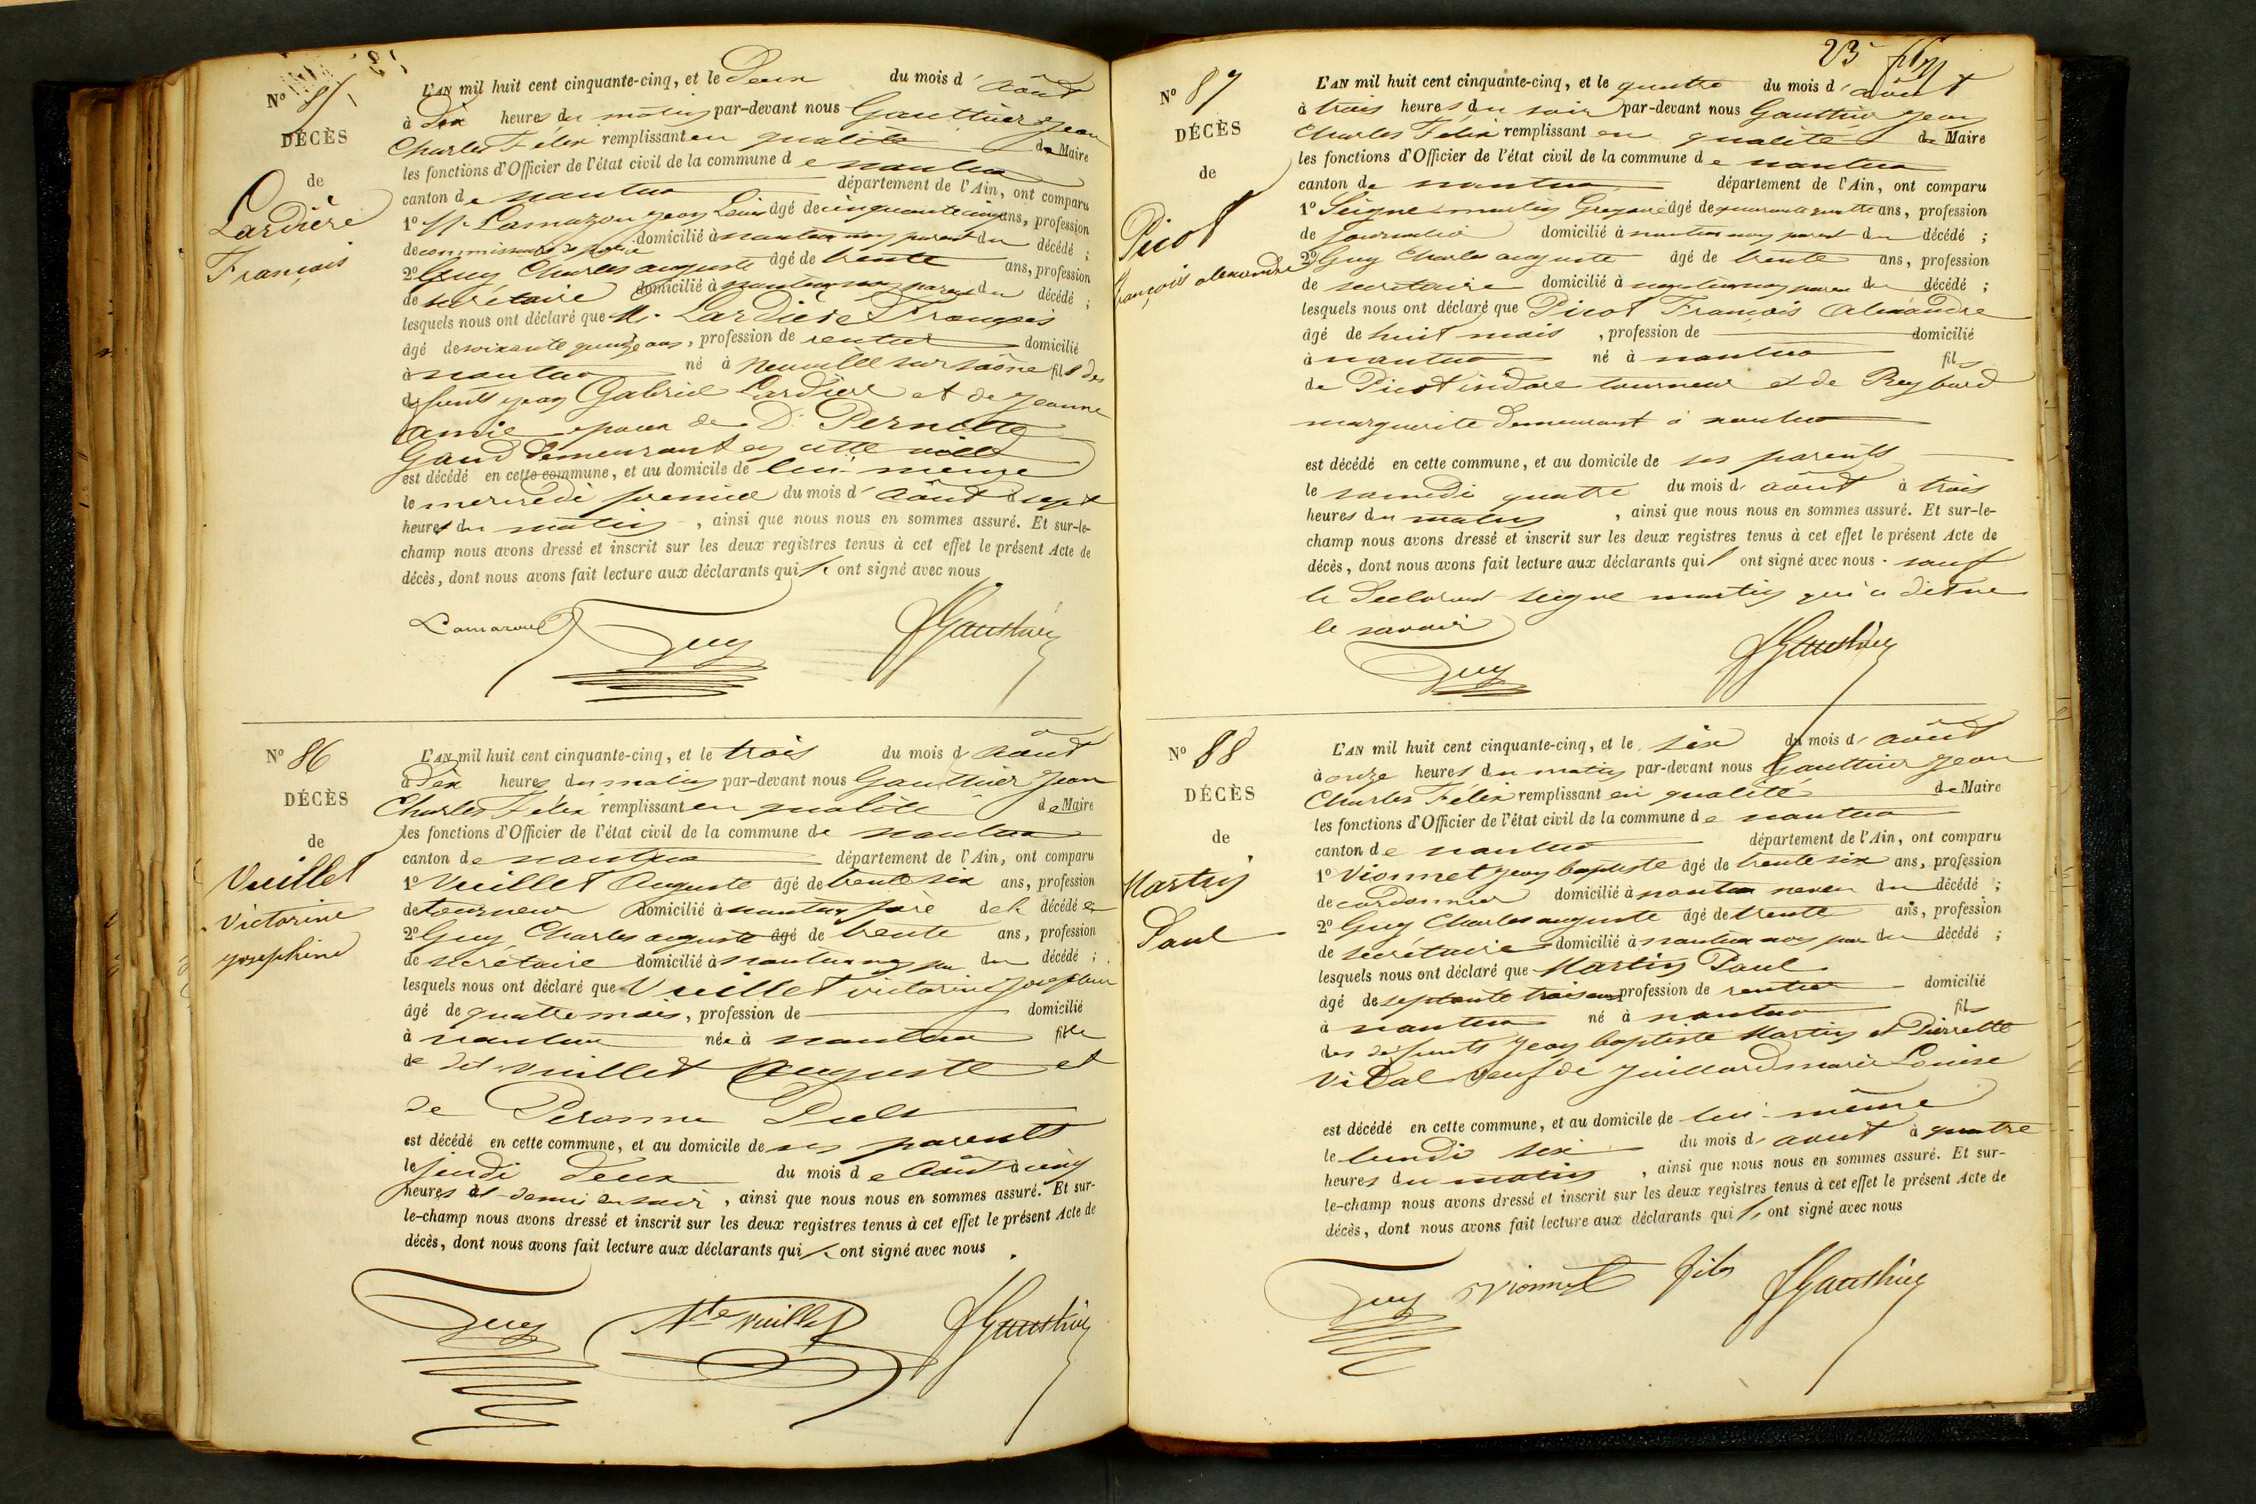 N° 85
DÉCÈS
de
Lardière
François
L'AN mil huit cent cinquante-cinq, et le Deux du mois d'Août
à Dix heures du matin par-devant nous Gautthier Jean
Charles Félix remplissant en qualité de Maire
les fonctions d'Officier de l'état civil de la commune de nantua
canton de nantua département de l'Ain, ont comparu
1° Mr Lamazou Jean Louis âgé de cinquante cinq ans, profession
de commissaire de police domicilié à nantua non parent du décédé ;
2° Guy Charles auguste âgé de trente ans, profession
de secrétaire domicilié à nantua non parent du décédé ;
lesquels nous ont déclaré que Mr Lardière François
âgé de soixante quinze ans, profession de rentier domicilié
à nantua né à Neuville sur saône fils des
défunts jean Gabriel Lardière et de jeanne
amie epoux de D. Pernette
Gaud demeurant en cette ville
est décédé en cette commune, et au domicile de lui-même
le mercredi premier du mois d'Août à sept
heures du matin, ainsi que nous nous en sommes assuré. Et sur-le-
champ nous avons dressé et inscrit sur les deux registres tenus à cet effet le présent Acte de
décès, dont nous avons fait lecture aux déclarants qui ont signé avec nous
Lamazou Guy JGautthier
N° 86
DÉCÈS
de
Vuillet
Victorine
josephine
L'AN mil huit cent cinquante-cinq, et le trois du mois d'Août
à Dix heures du matin par-devant nous Gautthier Jean
Charles Félix remplissant en qualité de Maire
les fonctions d'Officier de l'état civil de la commune de nantua
canton de nantua département de l'Ain, ont comparu
1° Vuillet Auguste âgé de trente six ans, profession
de tourneur domicilié à nantua père de la décédée
2° Guy Charles auguste âgé de trente ans, profession
de secrétaire domicilié à nantua non par du décédé ;
lesquels nous ont déclaré que Vuillet victorine josephine
âgé de quatre mois, profession de domicilié
à nantua née à nantua fille
de dit vuillet Auguste et
de Peronne
est décédé en cette commune, et au domicile de ses parents
le jeudi deux du mois de Août à cinq
heures et demi du soir, ainsi que nous nous en sommes assuré. Et sur-
le-champ nous avons dressé et inscrit sur les deux registres tenus à cet effet le présent Acte de
décès, dont nous avons fait lecture aux déclarants qui ont signé avec nous.
Guy Ate Vuillet JGautthier
23
N° 87
DÉCÈS
de
Picot
françois alexandre
L'AN mil huit cent cinquante-cinq, et le quatre du mois d'août
à trois heures du soir par-devant nous Gautthier Jean
Charles Félix remplissant en qualité de Maire
les fonctions d'Officier de l'état civil de la commune de nantua
canton de nantua département de l'Ain, ont comparu
1° Seigne martin Gregoire âgé de quarante quatre ans, profession
de journalier domicilié à nantua non parent du décédé ;
2° Guy Charles auguste âgé de trente ans, profession
de secrétaire domicilié à nantua non parent du décédé ;
lesquels nous ont déclaré que Picot François Alexandre
âgé de huit mois, profession de domicilié
à nantua né à nantua fils
de Picot isidore tourneur et de Reybard
marguerite demeurant à nantua
est décédé en cette commune, et au domicile de ses parents
le samedi quatre du mois d'août à trois
heures du matin, ainsi que nous nous en sommes assuré. Et sur-le-
champ nous avons dressé et inscrit sur les deux registres tenus à cet effet le présent Acte de
décès, dont nous avons fait lecture aux déclarants qui ont signé avec nous. sauf
le declarant seigne martin qui a dit ne
le savoir
Guy JGautthier
N° 88
DÉCÈS
de
Martin
Paul
L'AN mil huit cent cinquante-cinq, et le six du mois d'août
à onze heures du matin par-devant nous Gautthier Jean
Charles Félix remplissant en qualité de Maire
les fonctions d'Officier de l'état civil de la commune de nantua
canton de nantua département de l'Ain, ont comparu
1° Vionnet jean baptiste âgé de trente six ans, profession
de cordonnier domicilié à nantua neveu du décédé ;
2° Guy Charles auguste âgé de trente ans, profession
de secrétaire domicilié à nantua non par du décédé ;
lesquels nous ont déclaré que Martin Paul
âgé de septante trois ans profession de rentier domicilié
à nantua né à nantua fils
des defunts jean baptiste Martin et Pierrette
Vidal veuf de juillard marie Louise
est décédé en cette commune, et au domicile de lui-même
le lundi six du mois d'août à quatre
heures du matin, ainsi que nous nous en sommes assuré. Et sur-
le-champ nous avons dressé et inscrit sur les deux registres tenus à cet effet le présent Acte de
décès, dont nous avons fait lecture aux déclarants qui ont signé avec nous
Guy Vionnet fils JGautthier